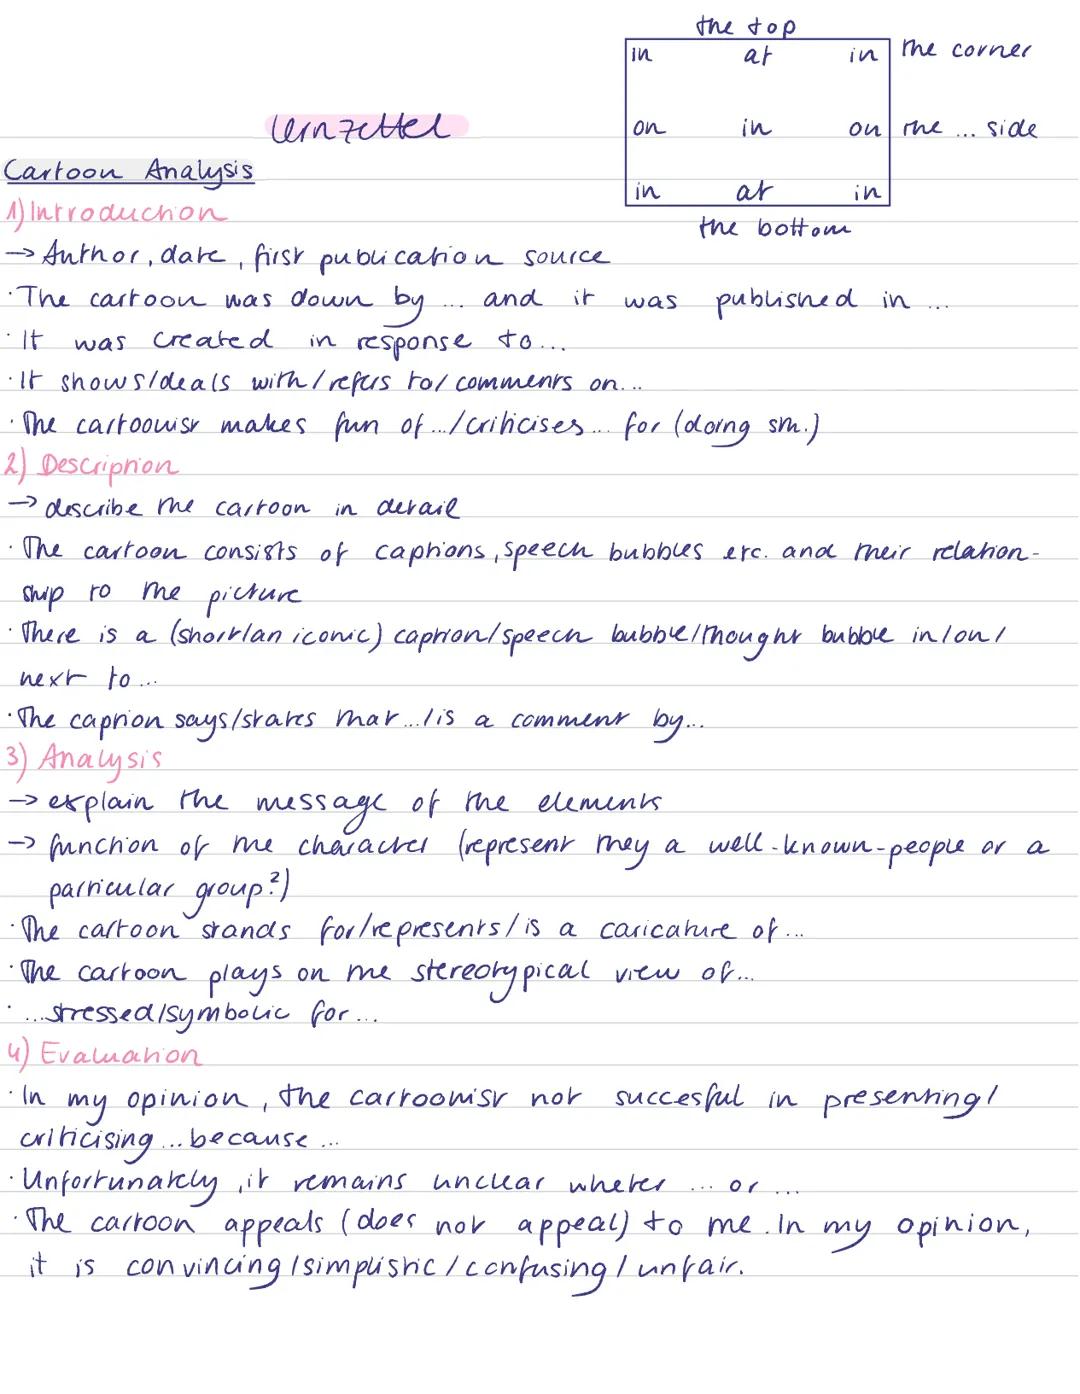 the top
in at in the corner
Lernzettel
on in on the ... side
Cartoon Analysis
in at in
1) Introduction
the bottom
→ Author, date, first publication source
· The cartoon was down by ... and it was published in ...
· It was created in response to ...
· It shows/deals with/refers to/comments on...
· The cartoonist makes fun of .../criticises... for (doing sm.)
2) Description
→ describe the cartoon in detail
· The cartoon consists of captions, speech bubbles etc. and their relation-
ship to the picture
· There is a (short/an iconic) caption/speech bubble/thought bubble in/on/
next to ...
· The caption says/states that .../is a comment by...
3) Analysis
→ explain the message of the elements
→ function of the character (represent they a well-known-people or a
particular group?)
· The cartoon stands for/represents/is a caricature of ...
· The cartoon plays on the stereotypical view of...
· ...stressed/symbolic for ...
4) Evaluation
· In my opinion, the cartoonist not succesful in presenting/
criticising ... because ...
· Unfortunately, it remains unclear wheter ... or ...
· The cartoon appeals (does not appeal) to me. In my opinion,
it is convincing/simplistic/confusing/unfair.